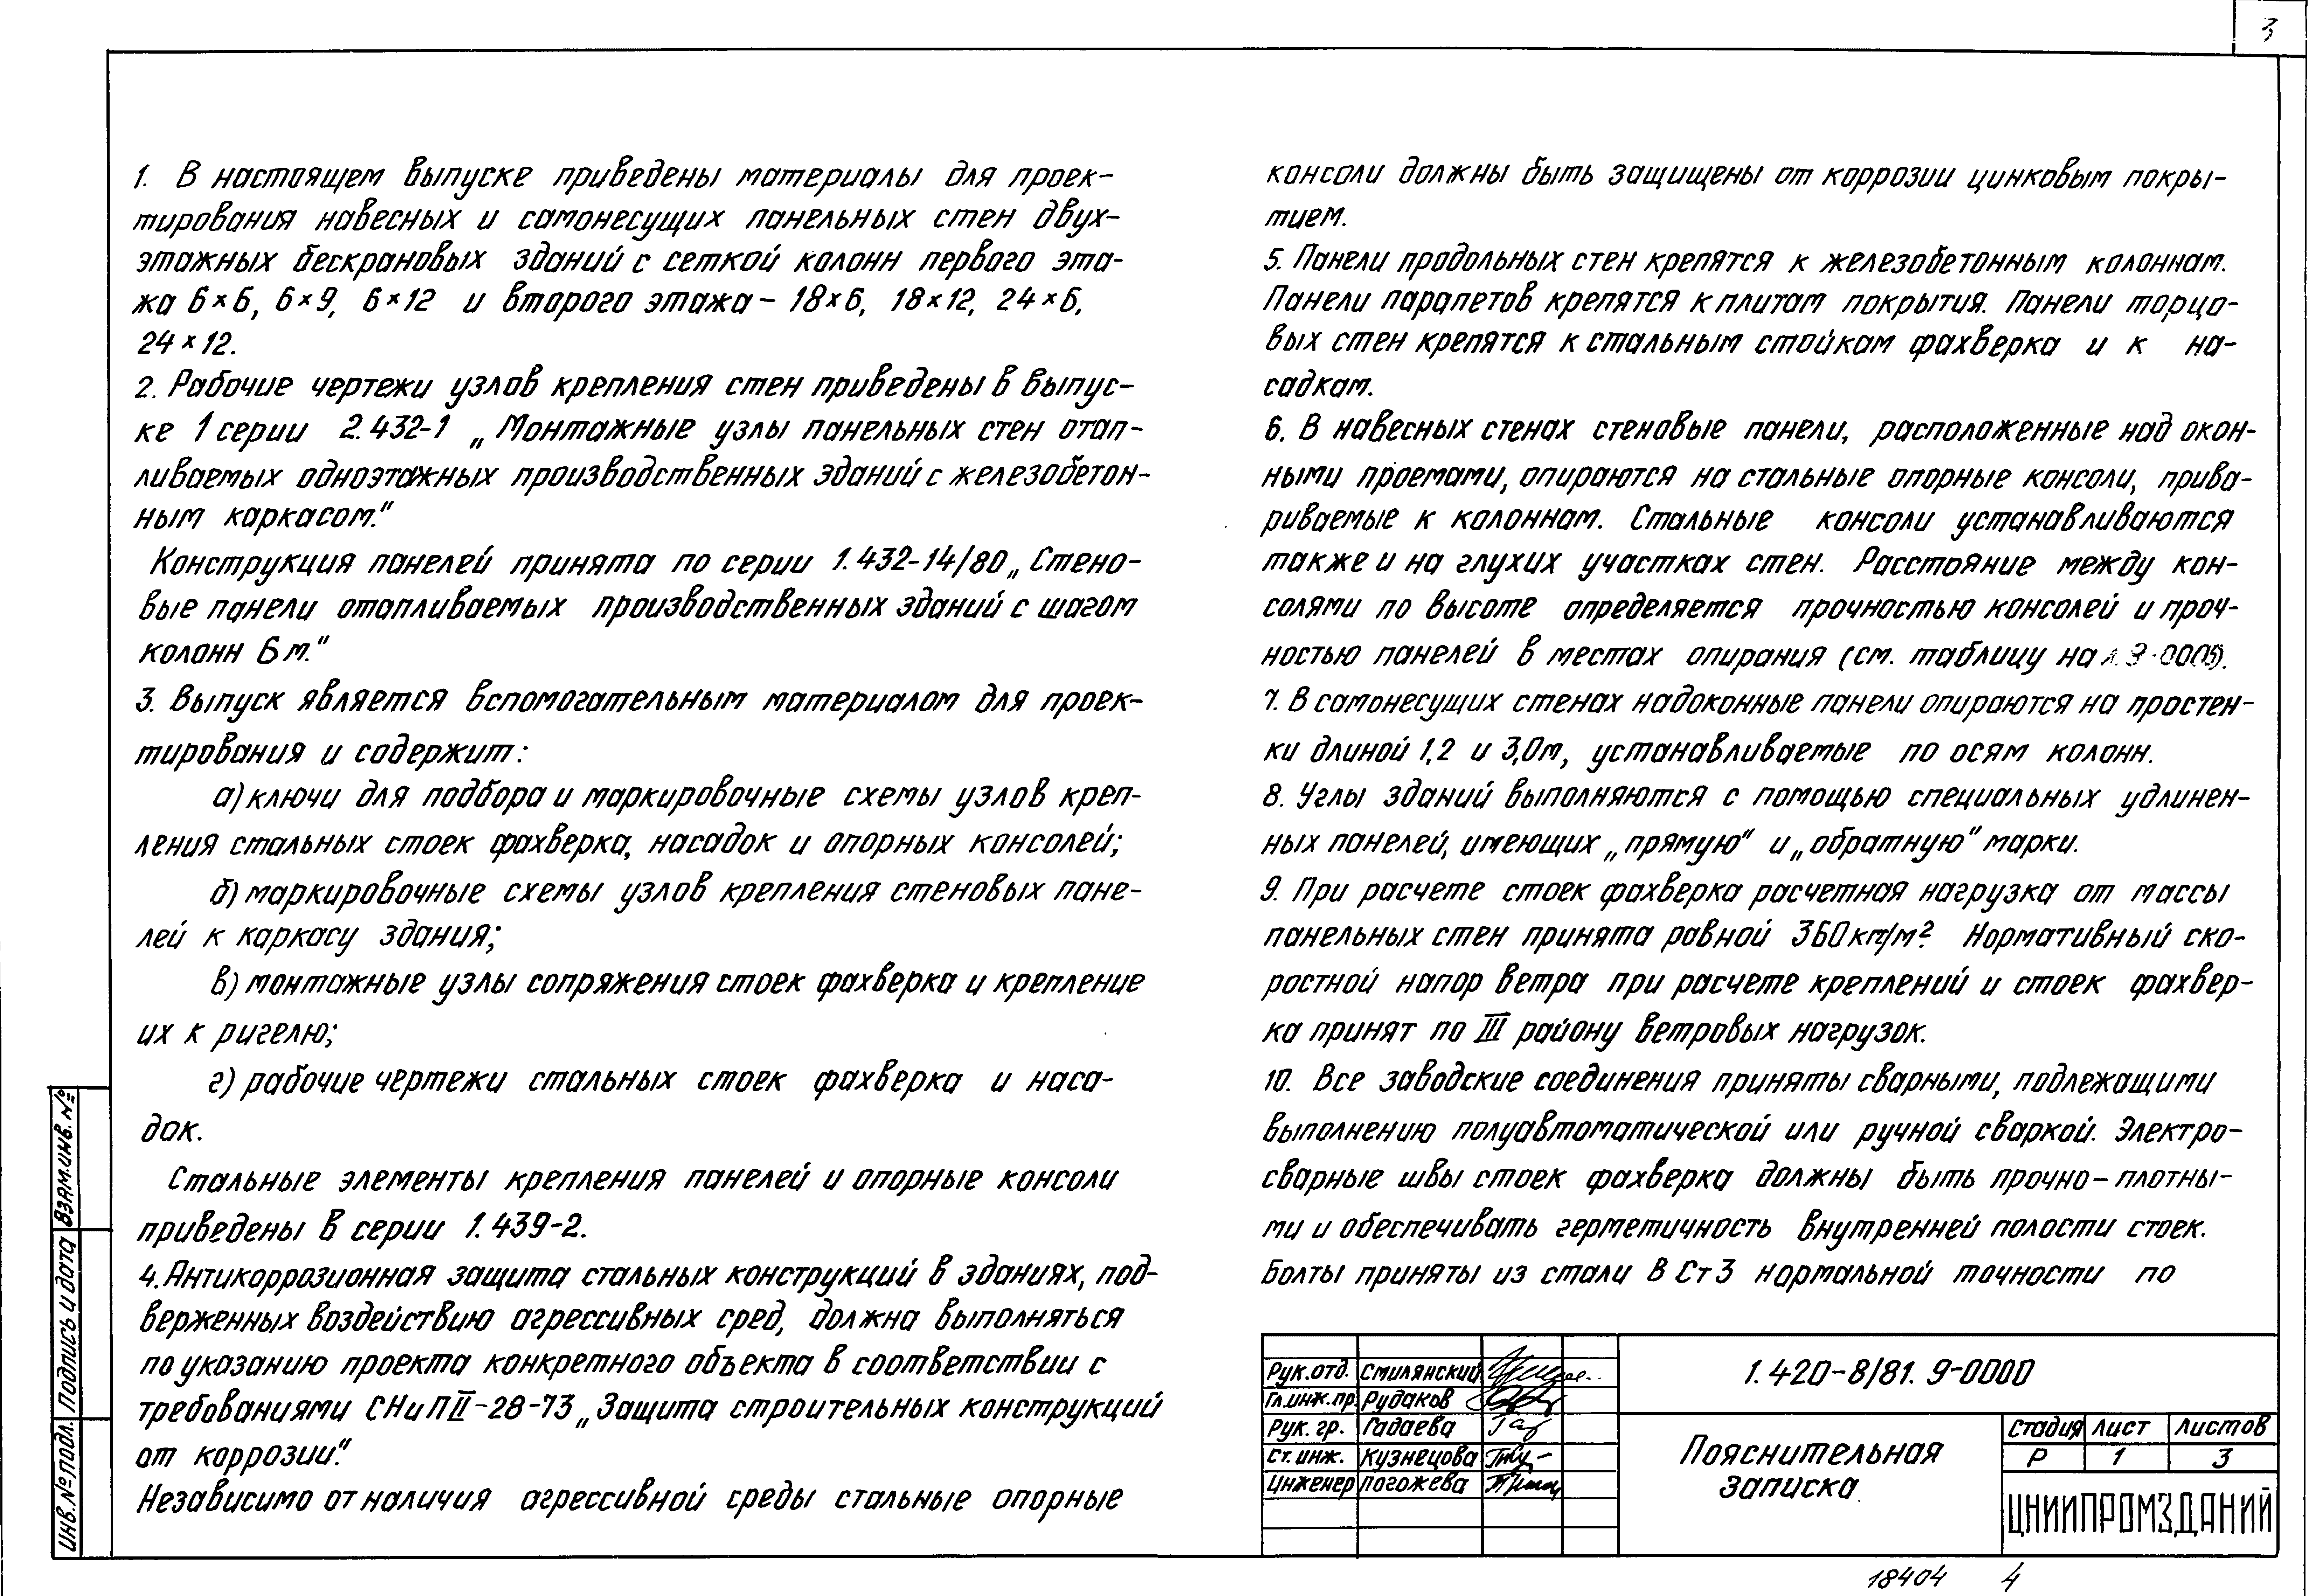 3
1. В настоящем выпуске приведены материалы для проек-
тирования навесных и самонесущих панельных стен двух-
этажных бескрановых зданий с сеткой колонн первого эта-
жа 6×6, 6×9, 6×12 и второго этажа – 18×6, 18×12, 24×6,
24×12.
2. Рабочие чертежи узлов крепления стен приведены в выпус-
ке 1 серии 2.432-1 „Монтажные узлы панельных стен отап-
ливаемых одноэтажных производственных зданий с железобетон-
ным каркасом."
Конструкция панелей принята по серии 1.432-14/80 „Стено-
вые панели отапливаемых производственных зданий с шагом
колонн 6 м."
3. Выпуск является вспомогательным материалом для проек-
тирования и содержит:
а) ключи для подбора и маркировочные схемы узлов креп-
ления стальных стоек фахверка, насадок и опорных консолей;
б) маркировочные схемы узлов крепления стеновых пане-
лей к каркасу здания;
в) монтажные узлы сопряжения стоек фахверка и крепление
их к ригелю;
г) рабочие чертежи стальных стоек фахверка и наса-
док.
Стальные элементы крепления панелей и опорные консоли
приведены в серии 1.439-2.
4. Антикоррозионная защита стальных конструкций в зданиях, под-
верженных воздействию агрессивных сред, должна выполняться
по указанию проекта конкретного объекта в соответствии с
требованиями СНиП II-28-73 „Защита строительных конструкций
от коррозии."
Независимо от наличия агрессивной среды стальные опорные
консоли должны быть защищены от коррозии цинковым покры-
тием.
5. Панели продольных стен крепятся к железобетонным колоннам.
Панели парапетов крепятся к плитам покрытия. Панели торцо-
вых стен крепятся к стальным стойкам фахверка и к на-
садкам.
6. В навесных стенах стеновые панели, расположенные над окон-
ными проемами, опираются на стальные опорные консоли, прива-
риваемые к колоннам. Стальные консоли устанавливаются
также и на глухих участках стен. Расстояние между кон-
солями по высоте определяется прочностью консолей и проч-
ностью панелей в местах опирания (см. таблицу на
7. В самонесущих стенах надоконные панели опираются на простен-
ки длиной 1,2 и 3,0м, устанавливаемые по осям колонн.
8. Углы зданий выполняются с помощью специальных удлинен-
ных панелей, имеющих „прямую" и „обратную" марки.
9. При расчете стоек фахверка расчетная нагрузка от массы
панельных стен принята равной 360 кг/м². Нормативный ско-
ростной напор ветра при расчете креплений и стоек фахвер-
ка принят по III району ветровых нагрузок.
10. Все заводские соединения приняты сварными, подлежащими
выполнению полуавтоматической или ручной сваркой. Электро-
сварные швы стоек фахверка должны быть прочно-плотны-
ми и обеспечивать герметичность внутренней полости стоек.
Болты приняты из стали ВСт3 нормальной точности по
Инв. № подл. Подпись и дата Взам. инв. №
Рук. отд. Смилянский
Гл. инж. пр. Рудаков
Рук. гр. Гадаева
Ст. инж. Кузнецова
Инженер Погожева
1.420-8/81. 9-0000
Пояснительная
записка
Стадия Лист Листов
Р 1 3
ЦНИИПРОМЗДАНИЙ
18404 4